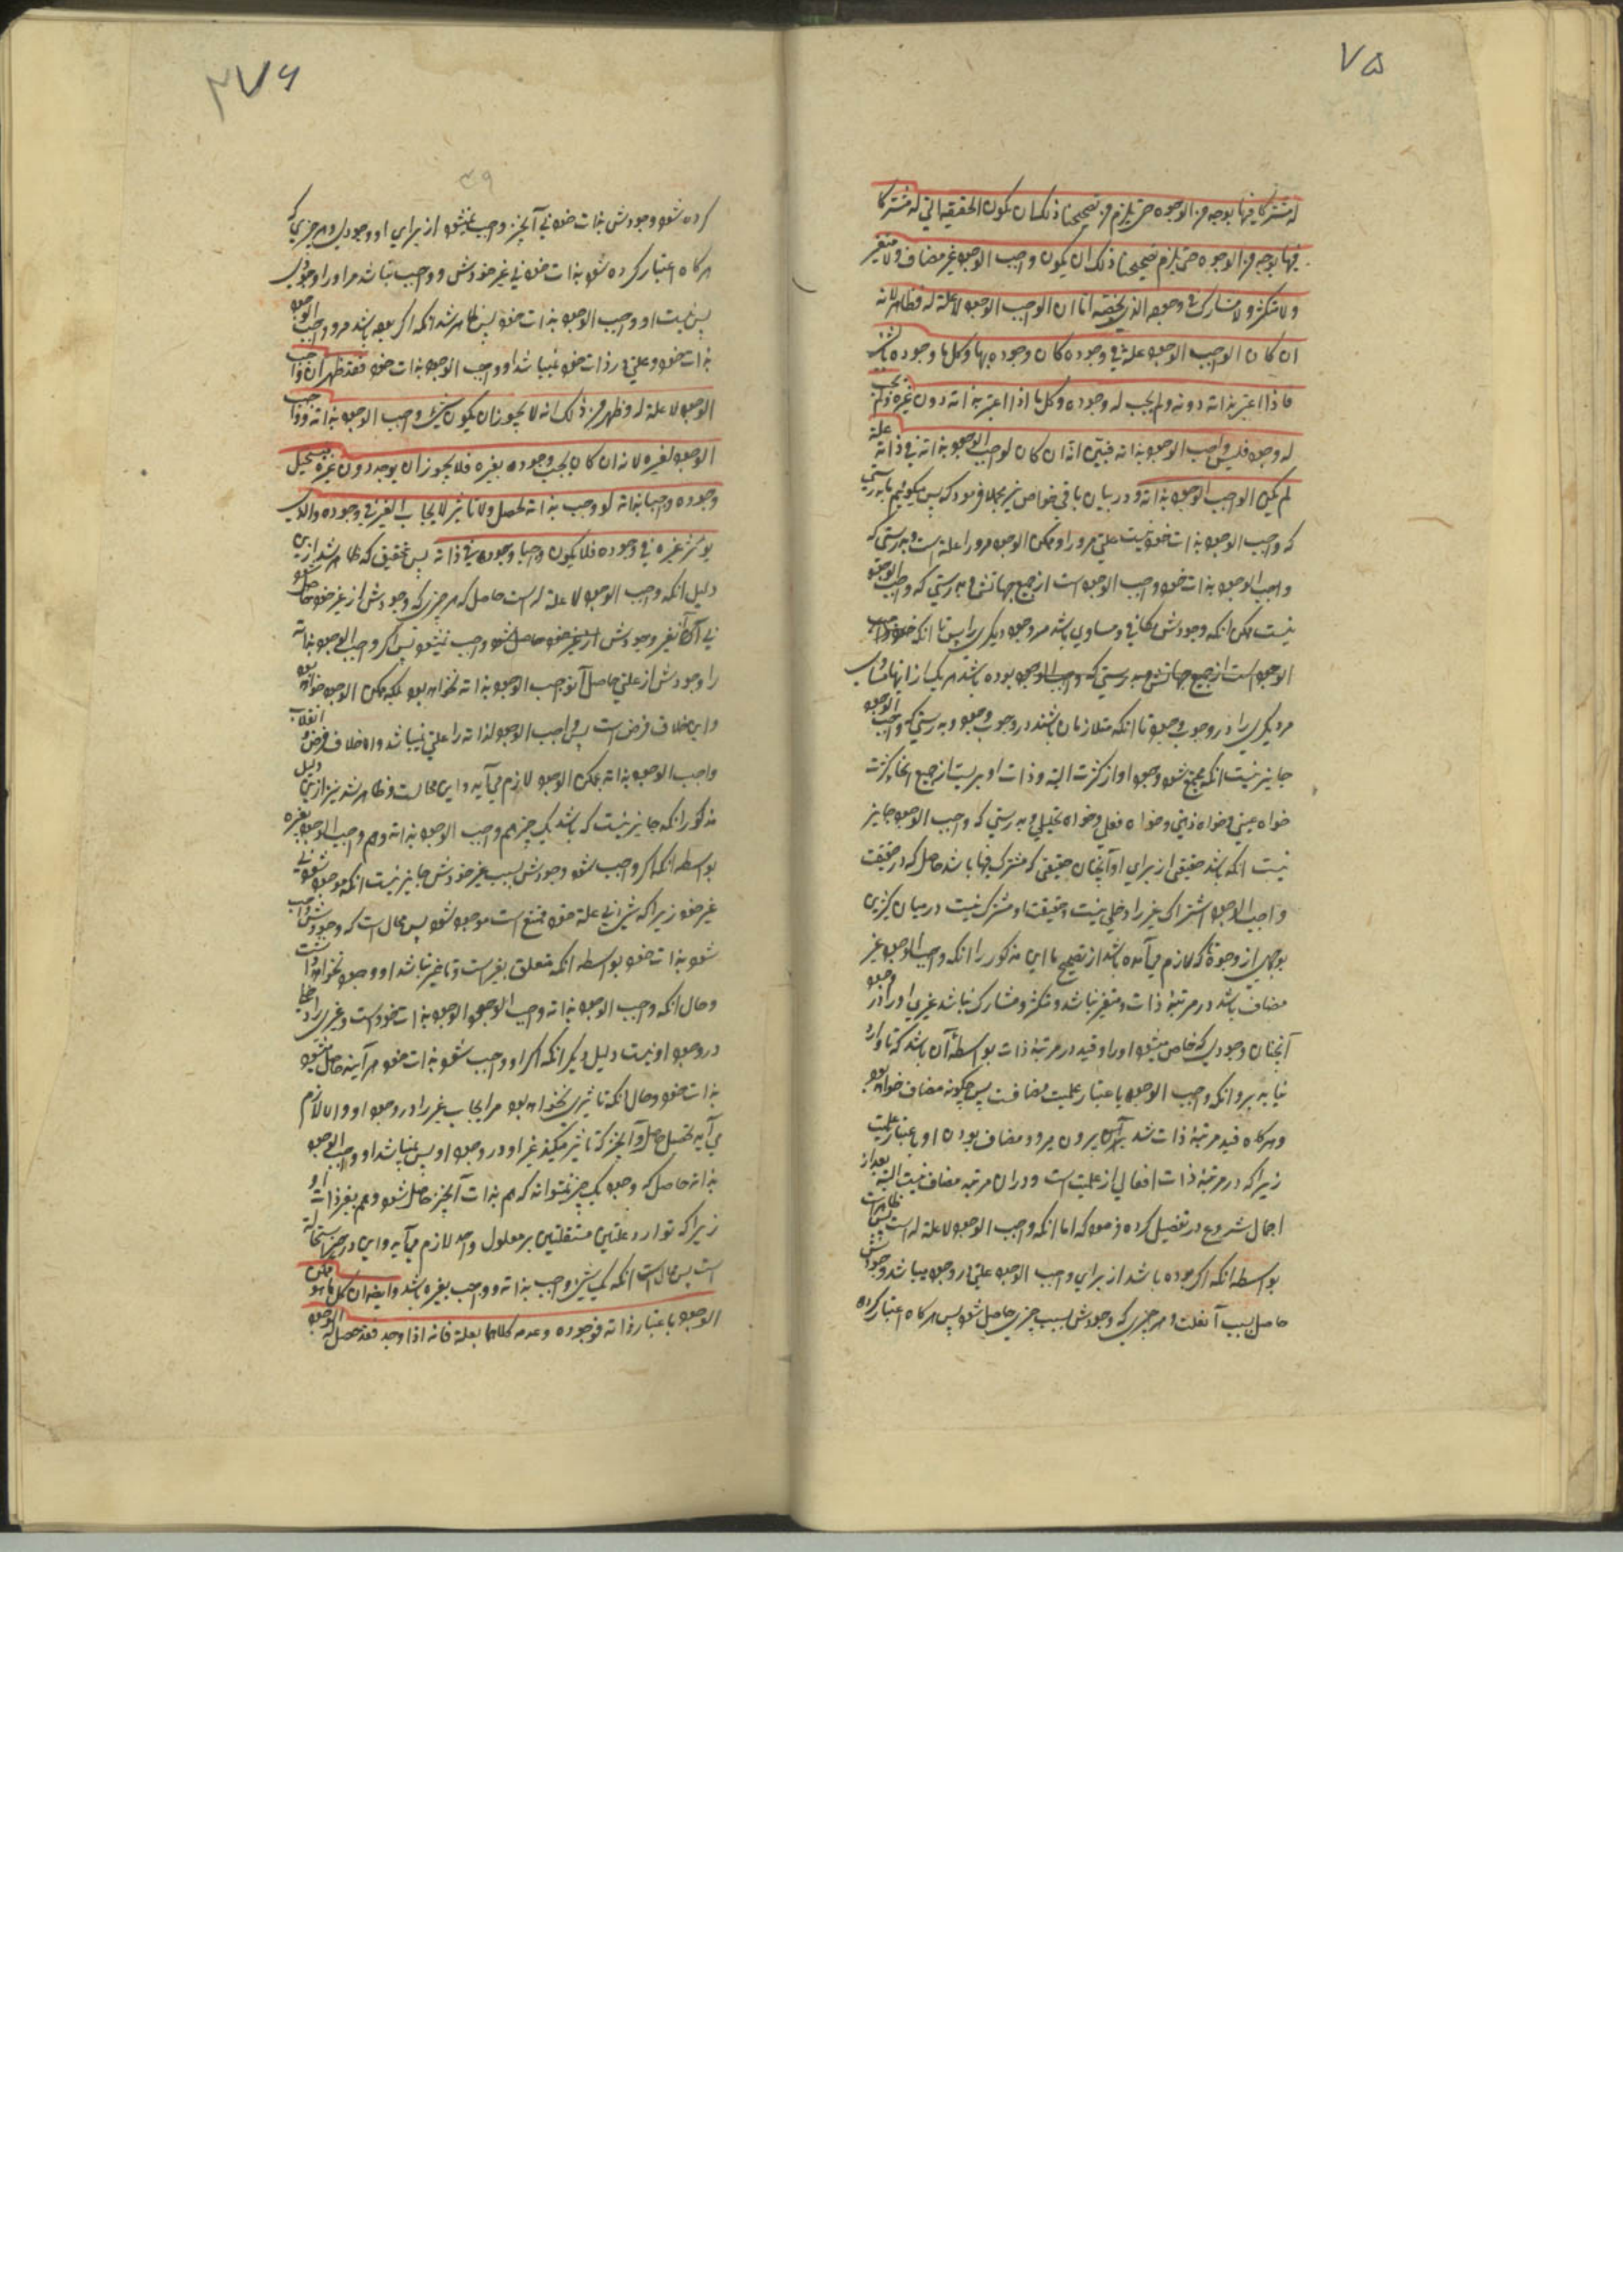 ۷۵
له مشترکا فیها بوجه من الوجوه حتی یلزم من تصحیحنا ذلک ان یکون الحقیقه التی له مشترکا
فیها بوجه من الوجوه حتی یلزم تصحیحنا ذلک ان یکون واجب الوجود غیر مضاف ولا متغیر
ولا متکثر ولا مشارک فی وجوده الذی یخصه اما ان الواجب الوجود لا علة له فظاهر لانه
ان کان الواجب الوجود علة فی وجوده کان وجوده بها وکل ما وجوده بشئ
فاذا اعتبر بذاته دونه ولم یجب له وجوده وکل ما اذا اعتبر بذاته دون غیره ولم یجب
له وجود فلیس واجب الوجود بذاته فبیّن انه ان کان لواجب الوجود بذاته فی ذاته علة
لم یکن الواجب الوجود بذاته و در بیان باقی خواص نیز مجملا فرمود که پس میکوئیم بدرستی
که واجب الوجود بذات خود نیست علتی مرورا و ممکن الوجود مرورا علة است و بدرستی که
واجب الوجود بذات خود واجب الوجود است از جمیع جهاتش و بدرستی که واجب الوجود
نیست ممکن انکه وجودش مکافی و مساوی باشد مر وجود دیکری را پس تا انکه
الوجود است از جمیع جهاتش و بدرستی که واجب الوجود بوده باشد هر یک از اینها مساوی
مر دیکری را در وجوب وجود تا انکه متلازمان باشند در وجوب وجود و بدرستی که واجب الوجود
جایز نیست انکه مجتمع شود وجود او از کثرت البته و ذات او بریست از جمیع انحاء کثرت
خواه عینی و خواه ذهنی و خواه فعلی و خواه تحلیلی و بدرستی که واجب الوجود جایز
نیست انکه باشد حقیقتی از برای او آنچنان حقیقتی که مشترک فیها باشد حاصل که در حقیقت
واجب الوجود اشتراک غیر را دخلی نیست و حقیقت او مشترک نیست در میان کثیرین
بوجهی از وجوه تا که لازم می آمده باشد از تصحیح ما این مذکور را انکه واجب الوجود غیر
مضاف باشد در مرتبهٔ ذات و متغیر نباشد و متکثر و مشارک نباشد غیری او را در وجود
آنچنان وجودی که خاص میشود او را و قید در مرتبهٔ ذات بواسطهٔ آن باشد که تا وارد
نیاید برو انکه واجب الوجود باعتبار علیت مضافست پس چکونه مضاف خواهد بود
و هرکاه قید مرتبهٔ ذات شد پس بیرون میرود مضاف بودن او باعتبار علیت
زیرا که در مرتبهٔ ذات افعالی از علیت است و در ان مرتبه مضاف نیست البته بعد از
اجمال شروع در تفصیل کرده فرمود که اما انکه واجب الوجود لا علة له است ظاهر است
بواسطه انکه اکر بوده باشد از برای واجب الوجود علتی در وجود میباشد وجودش
حاصل بسبب آنعلت و هر چیزی که وجودش بسبب چیزی حاصل شود پس هرکاه اعتبار کرده
۷۶
کرده شود وجودش بذات خود نی آنچیز واجب نمیشود از برای او وجودی و هر چیزی که
هرکاه اعتبار کرده شود بذات خود نی غیر خودش و واجب نباشد مر او را وجودی
پس نیست او واجب الوجود بذات خود پس ظاهر شد انکه اکر بوده باشد مر واجب الوجود
بذات خود علتی در ذات خود نمیباشد او واجب الوجود بذات خود فقد ظهر ان واجب
الوجود لا علة له وظهر من ذلک انه لا یجوز ان یکون شئ واجب الوجود بذاته وواجب
الوجود لغیره لانه ان کان یجب وجوده بغیره فلا یجوز ان یوجد دون غیره فیستحیل
وجوده واجبا بذاته لو وجب بذاته لحصل ولا تاثیر لایجاب الغیر فی وجوده والذی
یوثر غیره فی وجوده فلا یکون واجبا وجوده فی ذاته پس تحقیق که ظاهر شد ازین
دلیل انکه واجب الوجود لا علة له است حاصل که هر چیزی که وجودش از غیر خود حاصل شود
نی آن غیر وجودش از غیر خود حاصل شود واجب نمیشود پس اکر واجب الوجود بذاته
را وجودش از علتی حاصل آید واجب الوجود بذاته نخواهد بود بلکه ممکن الوجود خواهد بود
و این خلاف فرض است پس واجب الوجود لذاته را علتی نمیباشد والا خلاف فرض و انقلاب
واجب الوجود بذاته بممکن الوجود لازم می آید و این محالست و ظاهر شد نیز ازین دلیل
مذکور انکه جایز نیست که باشد یک چیز هم واجب الوجود بذاته و هم واجب الوجود بغیره
بواسطه انکه اکر واجب شود وجودش بسبب غیر خودش جایز نیست انکه موجود شود بی
غیر خود زیرا که شئ بی علة خود ممتنع است موجود شود پس محال است که وجودش واجب
شود بذات خود بواسطه انکه متعلق بغیر است و تا غیر نباشد او وجود نخواهد داشت
و حال انکه واجب الوجود بذاته واجب الوجود بذات خود است و غیری را دخل
در وجود او نیست دلیل دیکر انکه اکر او واجب شود بذات خود هر آینه حاصل میشود
بذات خود و حال انکه تاثیری نخواهد بود مر ایجاب غیر را در وجود او والا لازم
می آید تحصیل حاصل و آنچیز که تاثیر میکند غیر او در وجود او پس نمیباشد او واجب الوجود
بذاته حاصل که وجود یک چیز نمیتواند که هم بذات آنچیز حاصل شود و هم بغیر ذات او
زیرا که توارد علتین مستقلتین بر معلول واحد لازم می آید و این در حیز استحاله
است پس محال است انکه یک شئ واجب بذاته و واجب بغیره باشد وایضا ان کل ما هو ممکن
الوجود باعتبار ذاته فوجوده وعدمه کلاهما بعلة فانه اذا وجد فقد حصل له الوجود